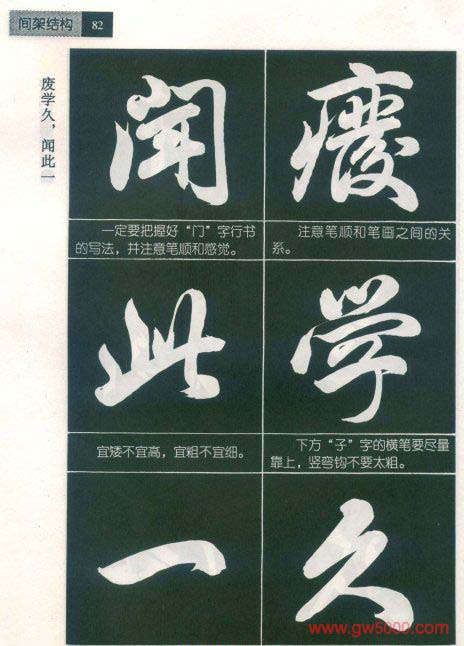 间架结构 82
废学久，闻此一
癈
注意笔顺和笔画之间的关
系。
学
下方“子”字的横笔要尽量
靠上，竖弯钩不要太粗。
久
闻
一定要把握好“门”字行书
的写法，并注意笔顺和感觉。
此
宜矮不宜高，宜粗不宜细。
一
www.gw5000.com